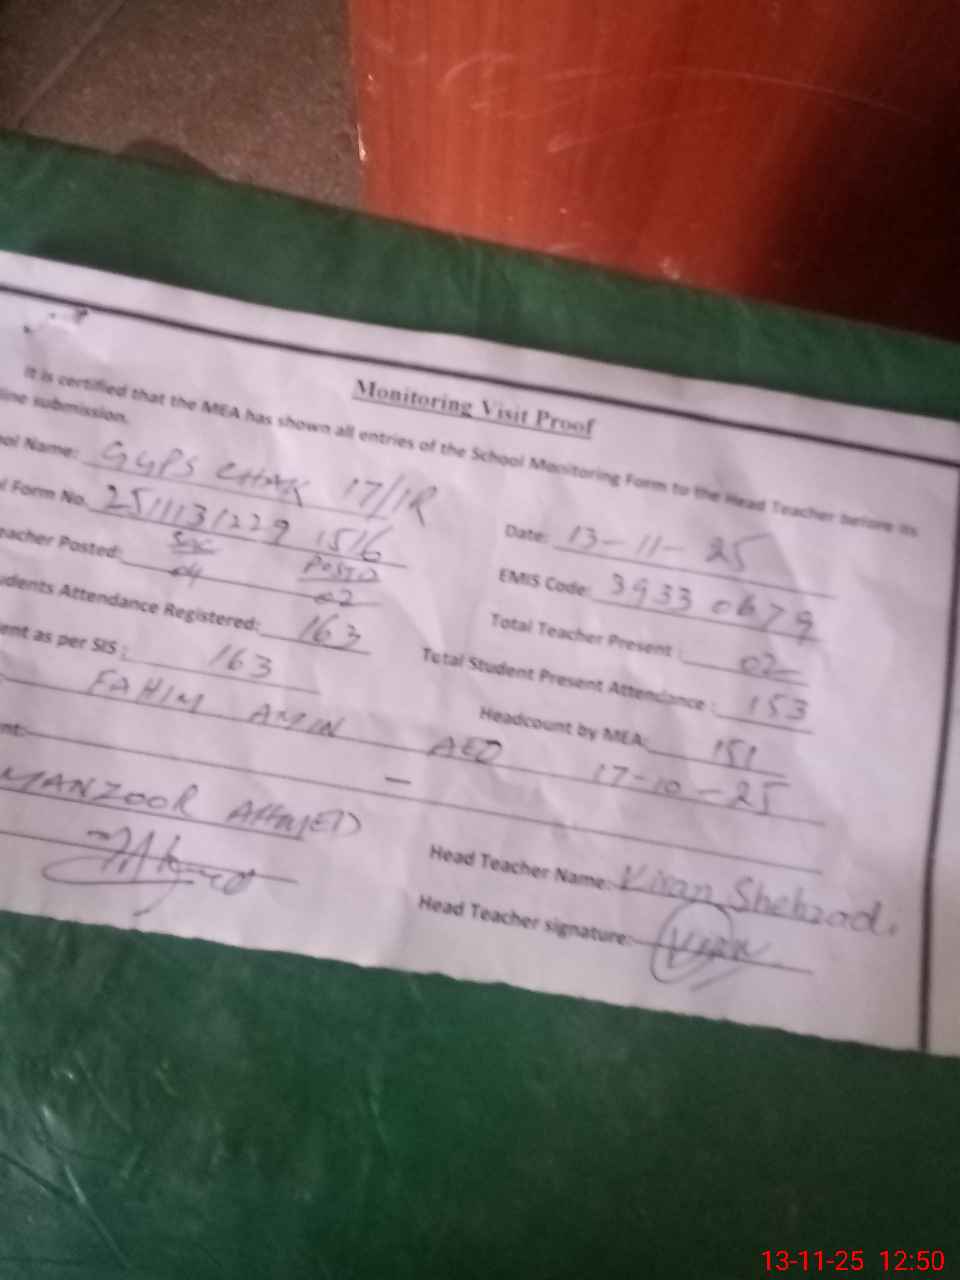 Monitoring Visit Proof
It is certified that the MEA has shown all entries of the School Monitoring Form to the Head Teacher before its
line submission.
ool Name: GGPS CHAK 17/1R
Date: 13-11-25
l Form No. 2511131229 1516
EMIS Code: 39330679
eacher Posted: 04 POSTED 02
Total Teacher Present: 02
udents Attendance Registered: 163
Total Student Present Attendance: 153
ent as per SIS: 163
Headcount by MEA: 151
FAHIM AMIN AEO 17-10-25
nt: —
MANZOOR AHMED
Head Teacher Name: Kiran Shehzadi
Head Teacher signature: Kiran
13-11-25 12:50